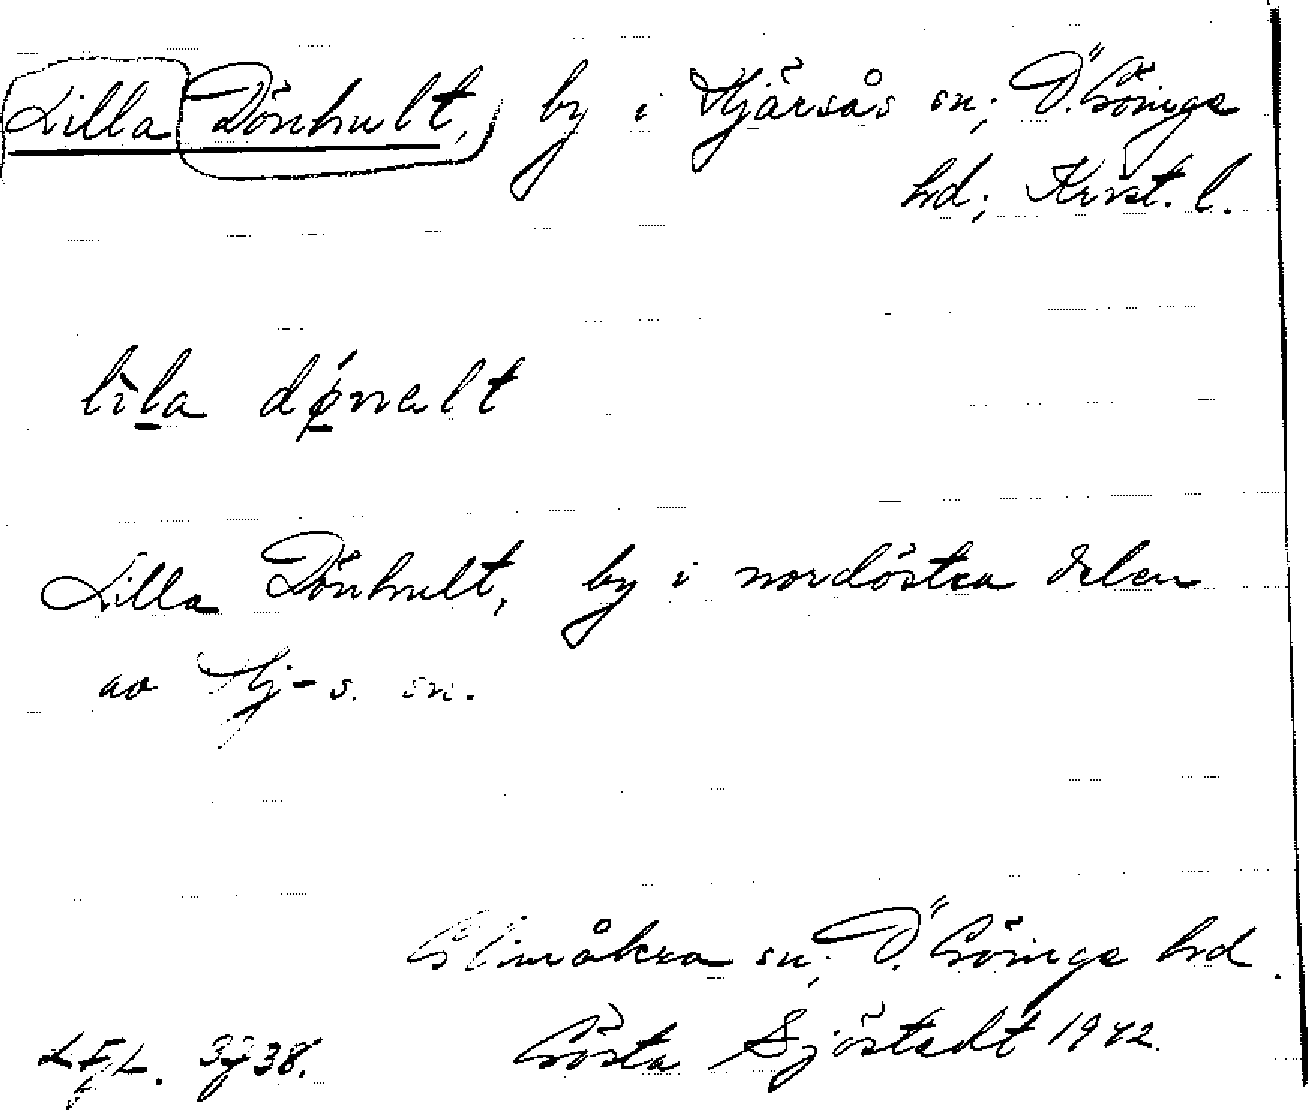 Lilla Dönhult, by i Hjärsås sn; Ö. Göinge
hd; Krist. l.
lìla dǿnalt
Lilla Dönhult, by i nordöstra delen
av Hj-s. sn.
Glimåkra sn; Ö. Göinge hd.
Gösta Sjöstedt 1942.